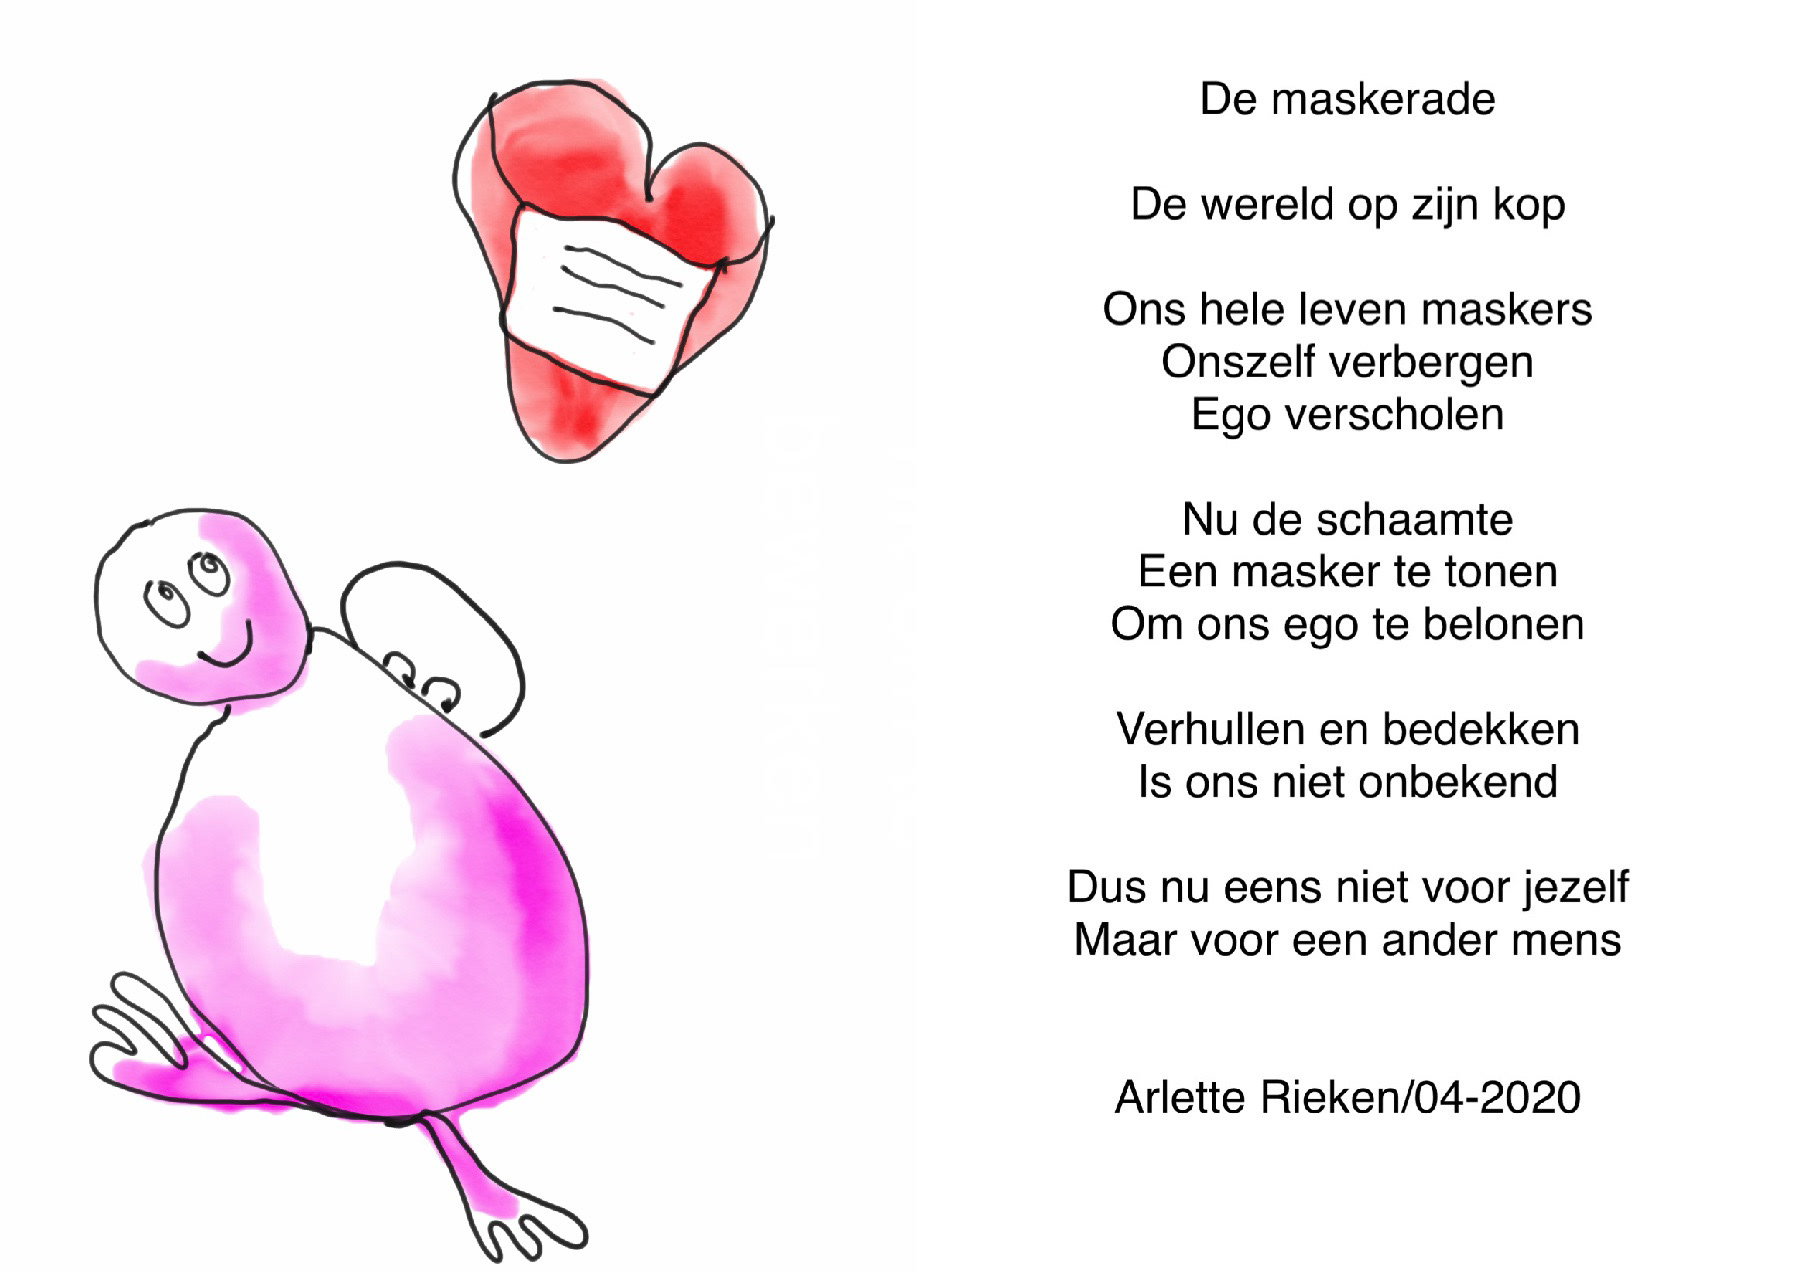 De maskerade
De wereld op zijn kop
Ons hele leven maskers
Onszelf verbergen
Ego verscholen
Nu de schaamte
Een masker te tonen
Om ons ego te belonen
Verhullen en bedekken
Is ons niet onbekend
Dus nu eens niet voor jezelf
Maar voor een ander mens
Arlette Rieken/04-2020